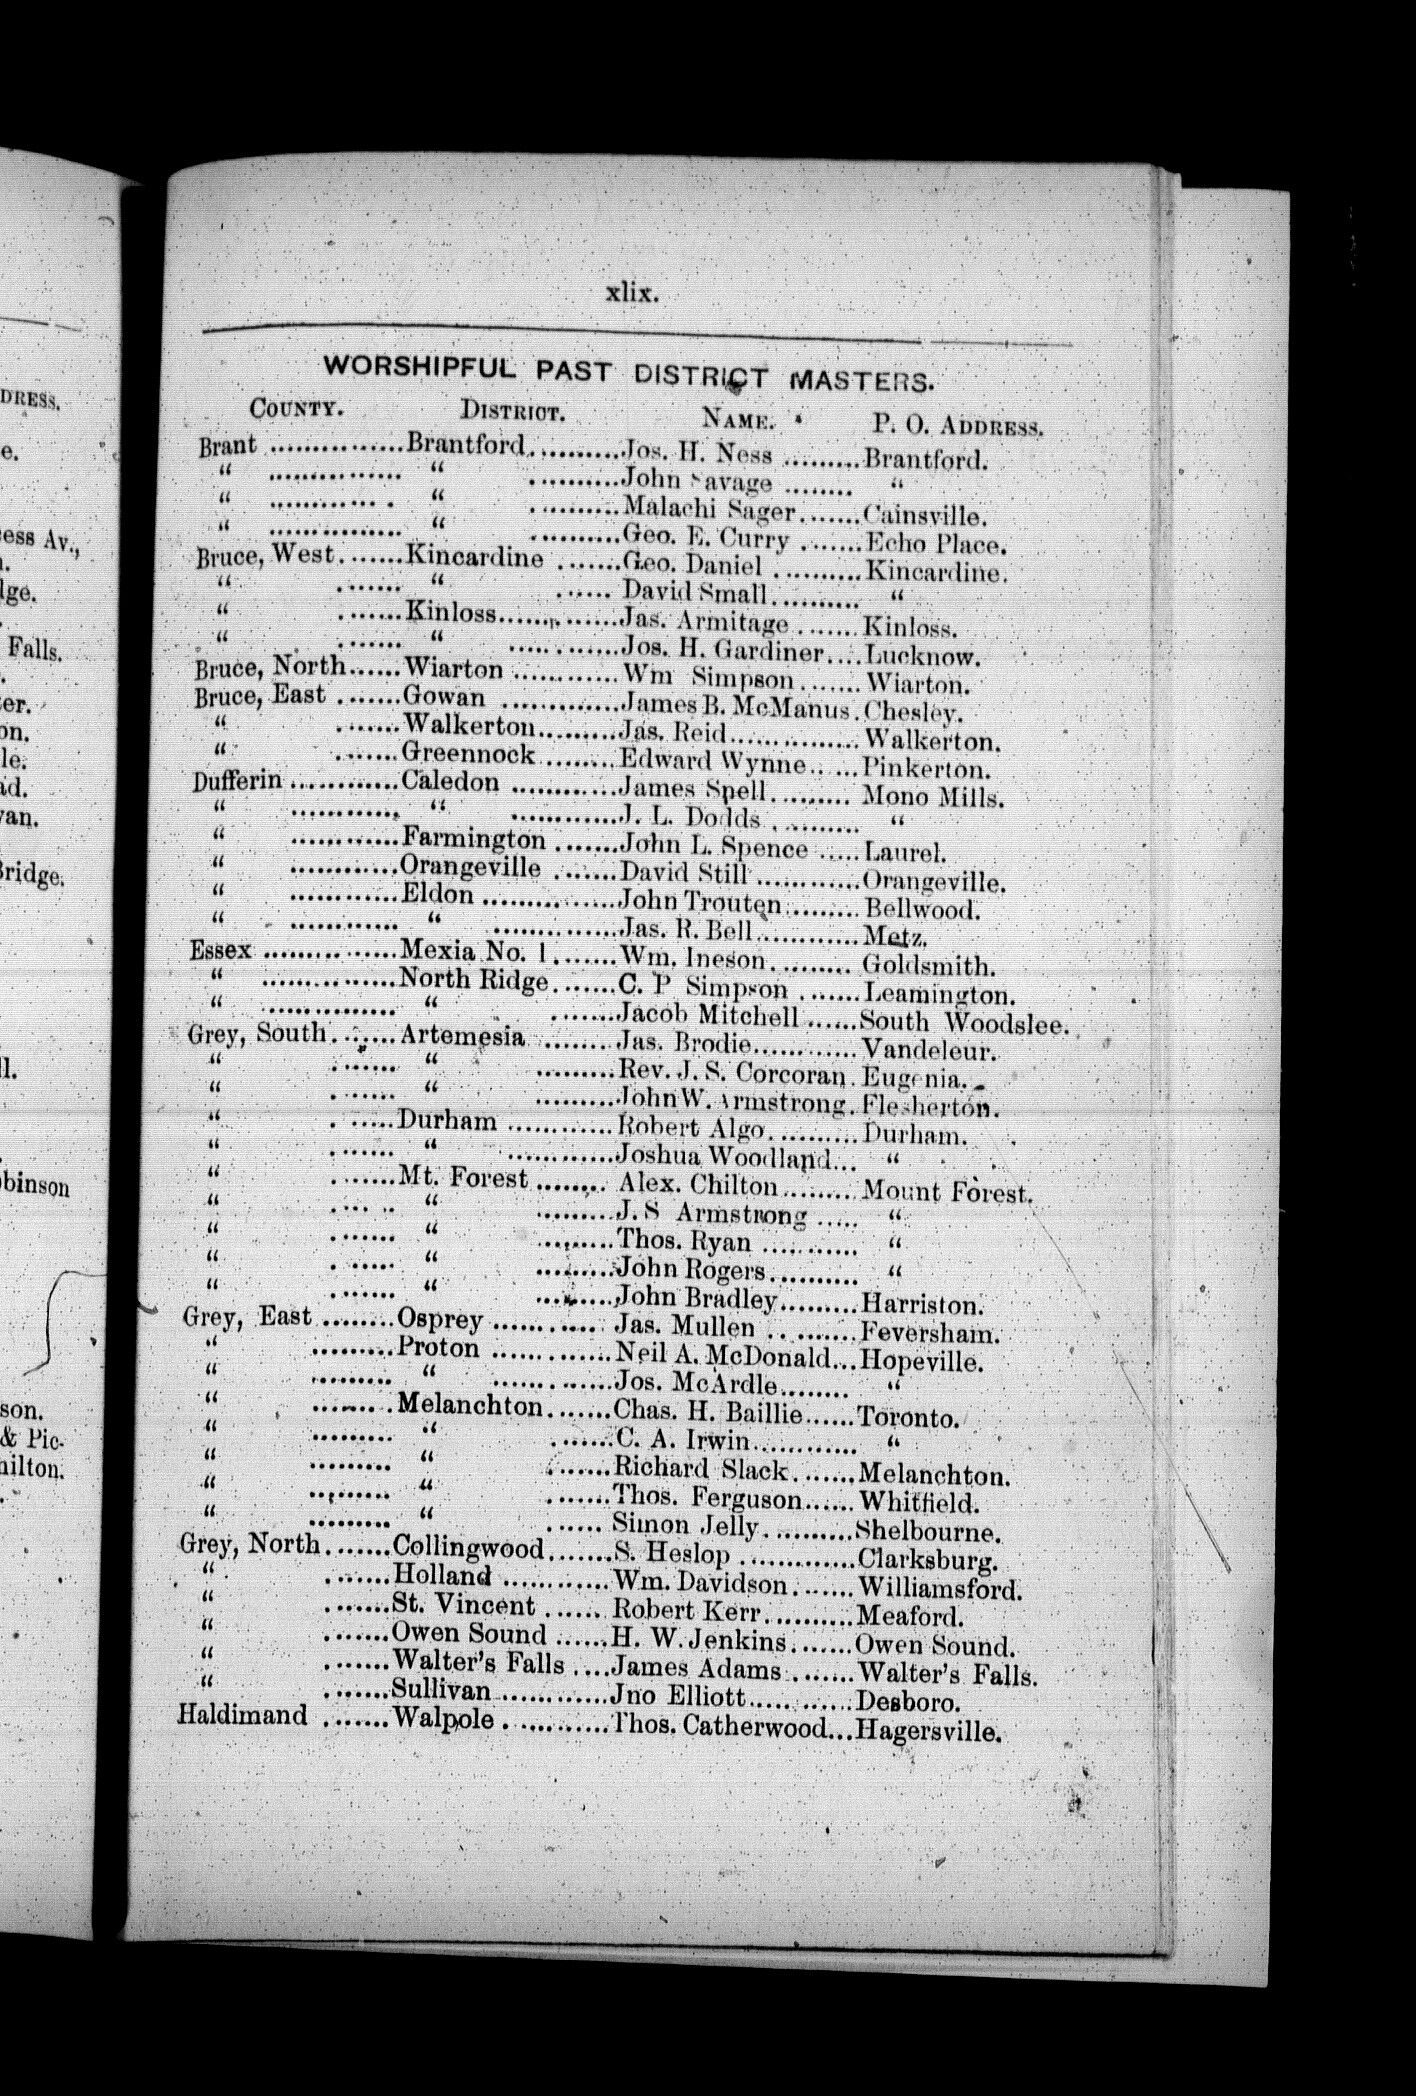 xlix.
WORSHIPFUL PAST DISTRICT MASTERS.
COUNTY. DISTRICT. NAME. P. O. ADDRESS.
Brant ............... Brantford .......... Jos. H. Ness ......... Brantford.
“ ............... “ .......... John Savage ........ “
“ ............... “ .......... Malachi Sager ....... Cainsville.
“ ............... “ .......... Geo. E. Curry ....... Echo Place.
Bruce, West ....... Kincardine ....... Geo. Daniel .......... Kincardine.
“ ....... “ ...... David Small .......... “
“ ....... Kinloss ............. Jas. Armitage ....... Kinloss.
“ ....... “ ............ Jos. H. Gardiner .... Lucknow.
Bruce, North ...... Wiarton ............ Wm Simpson ....... Wiarton.
Bruce, East ....... Gowan ............. James B. McManus . Chesley.
“ ....... Walkerton ......... Jas. Reid ............... Walkerton.
“ ....... Greennock ........ Edward Wynne ..... Pinkerton.
Dufferin ............ Caledon ............ James Spell ......... Mono Mills.
“ ............ “ ............ J. L. Dodds .......... “
“ ............ Farmington ....... John L. Spence ..... Laurel.
“ ............ Orangeville ....... David Still ............ Orangeville.
“ ............ Eldon ............... John Trouten ........ Bellwood.
“ ............ “ .............. Jas. R. Bell ........... Metz.
Essex ............... Mexia No. 1 ....... Wm. Ineson ......... Goldsmith.
“ ............... North Ridge ....... C. P Simpson ....... Leamington.
“ ............... “ ....... Jacob Mitchell ...... South Woodslee.
Grey, South ....... Artemesia ........ Jas. Brodie ............ Vandeleur.
“ ....... “ ......... Rev. J. S. Corcoran . Eugenia.
“ ....... “ ......... John W. Armstrong . Flesherton.
“ ....... Durham ............ Robert Algo .......... Durham.
“ ....... “ ............ Joshua Woodland ... “
“ ....... Mt. Forest ........ Alex. Chilton ......... Mount Forest.
“ ....... “ ......... J. S Armstrong ..... “
“ ....... “ ......... Thos. Ryan ........... “
“ ....... “ ......... John Rogers .......... “
“ ....... “ ......... John Bradley ......... Harriston.
Grey, East ........ Osprey ............ Jas. Mullen .......... Feversham.
“ ......... Proton ............. Neil A. McDonald ... Hopeville.
“ ......... “ ............. Jos. McArdle ........ “
“ ......... Melanchton ....... Chas. H. Baillie ...... Toronto.
“ ......... “ ....... C. A. Irwin ............ “
“ ......... “ ....... Richard Slack ....... Melanchton.
“ ......... “ ....... Thos. Ferguson ...... Whitfield.
“ ......... “ ...... Simon Jelly .......... Shelbourne.
Grey, North ....... Collingwood ....... S. Heslop ............. Clarksburg.
“ ....... Holland ............ Wm. Davidson ....... Williamsford.
“ ....... St. Vincent ...... Robert Kerr .......... Meaford.
“ ....... Owen Sound ...... H. W. Jenkins ....... Owen Sound.
“ ....... Walter's Falls .... James Adams ....... Walter's Falls.
“ ....... Sullivan ............ Jno Elliott ............ Desboro.
Haldimand ....... Walpole ............ Thos. Catherwood ... Hagersville.
DRESS.
e.
ess Av.,
lge.
Falls.
er.
on.
le.
ad.
van.
Bridge.
ll.
obinson
son.
& Pic-
hilton.